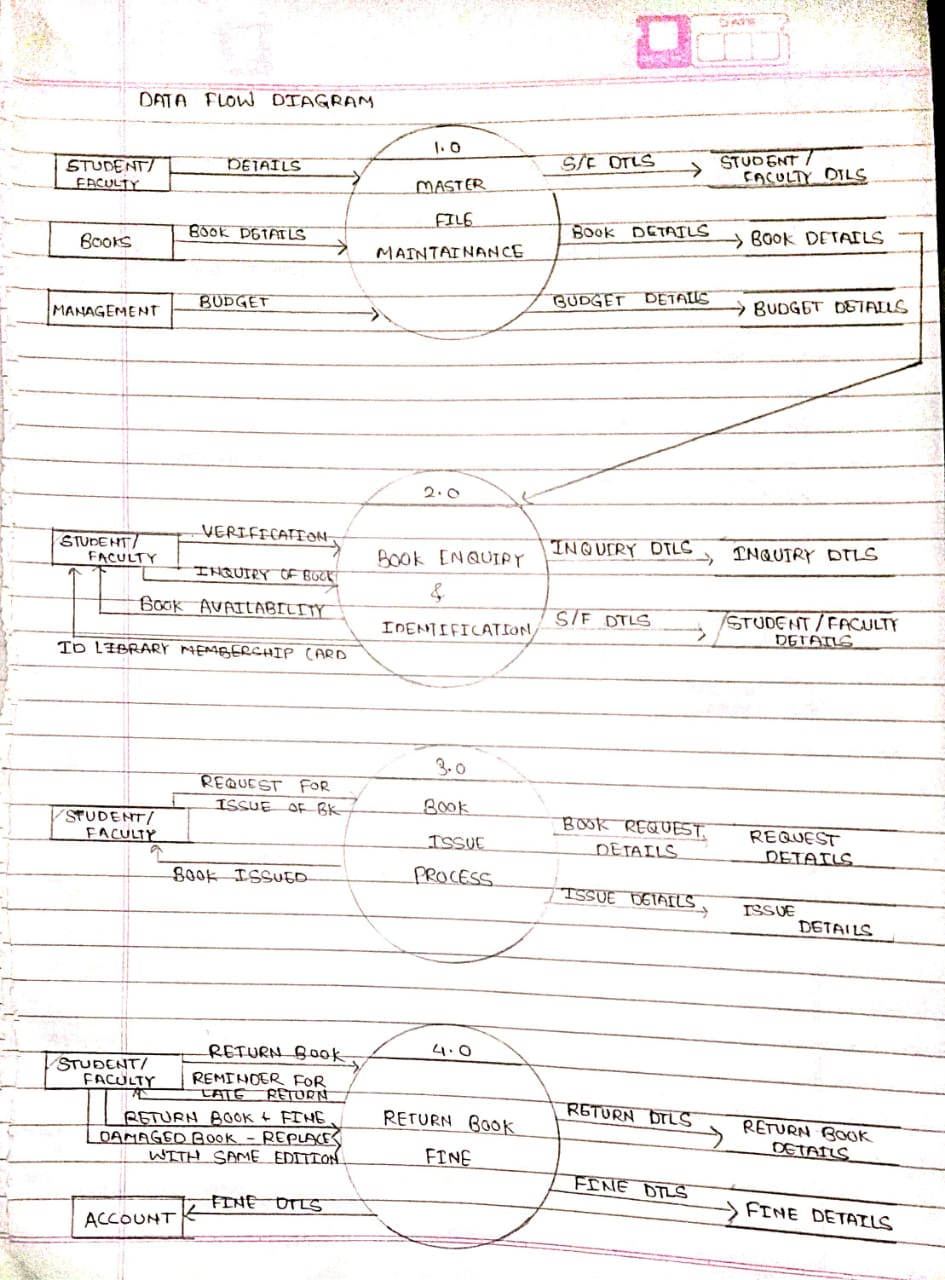 DATE
DATA FLOW DIAGRAM
1.0
STUDENT/
FACULTY
DETAILS
MASTER
FILE
MAINTAINANCE
S/F DTLS
STUDENT /
FACULTY DTLS
BOOKS
BOOK DETAILS
BOOK DETAILS
BOOK DETAILS
MANAGEMENT
BUDGET
BUDGET DETAILS
BUDGET DETAILS
2.0
STUDENT/
FACULTY
VERIFICATION
INQUIRY OF BOOK
BOOK AVAILABILITY
ID LIBRARY MEMBERSHIP CARD
BOOK ENQUIRY
&
IDENTIFICATION
INQUIRY DTLS
INQUIRY DTLS
S/F DTLS
STUDENT/FACULTY
DETAILS
3.0
STUDENT/
FACULTY
REQUEST FOR
ISSUE OF BK
BOOK ISSUED
BOOK
ISSUE
PROCESS
BOOK REQUEST
DETAILS
REQUEST
DETAILS
ISSUE DETAILS
ISSUE
DETAILS
4.0
STUDENT/
FACULTY
RETURN BOOK
REMINDER FOR
LATE RETURN
RETURN BOOK + FINE
DAMAGED BOOK - REPLACE
WITH SAME EDITION
RETURN BOOK
FINE
RETURN DTLS
RETURN BOOK
DETAILS
ACCOUNT
FINE DTLS
FINE DTLS
FINE DETAILS